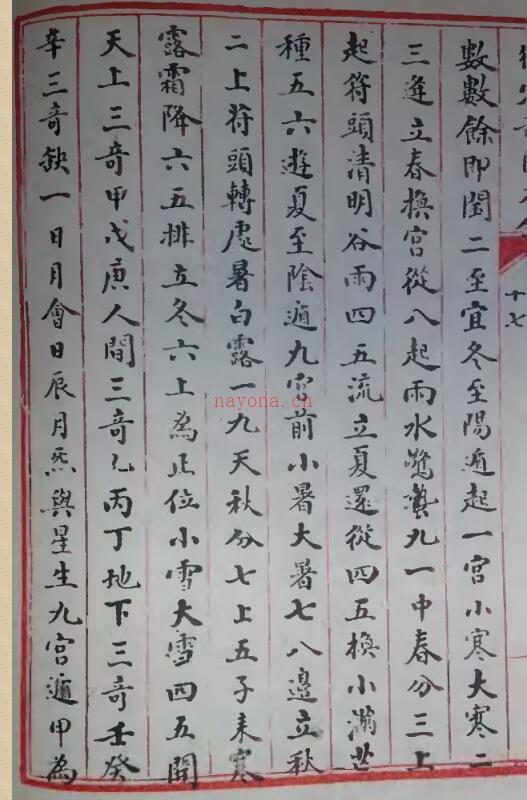 十七
數數餘即閏二至宜冬至陽遁起一宮小寒大寒二
三逢立春換宮從八起雨水驚蟄九一中春分三上
起符頭清明谷雨四五流立夏還從四五換小滿芒
種五六遊夏至陰遁九宮前小暑大暑七八邊立秋
二上符頭轉處暑白露一九天秋分七上五子來寒
露霜降六五排立冬六上為正位小雪大雪四五開
天上三奇甲戊庚人間三奇乙丙丁地下三奇壬癸
辛三奇缺一日月會日辰月炁與星生九宮遁甲為
nayona.cn